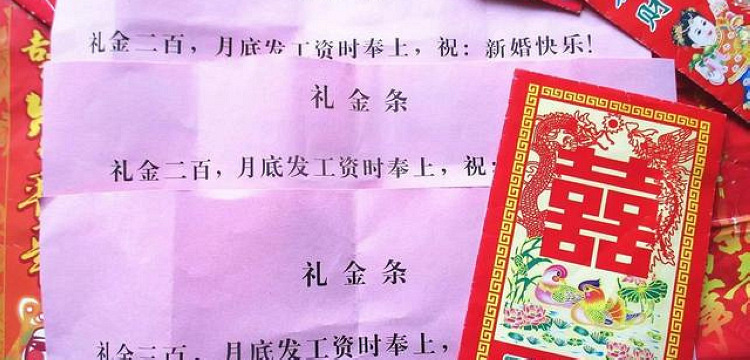 礼金二百，月底发工资时奉上，祝：新婚快乐！
礼金条
礼金二百，月底发工资时奉上，祝：
礼金条
礼金二百，月底发工资时奉上，
囍
财